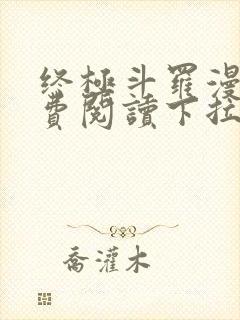 终極斗羅漫
費閱讀下拉
喬灌木